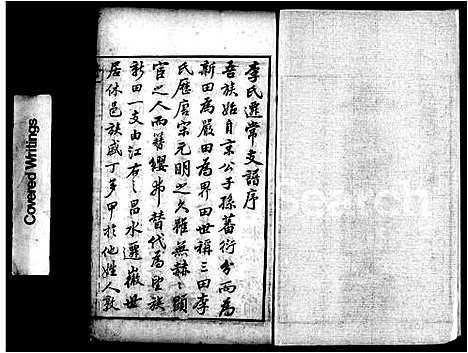 李氏遷常支譜序
吾族始自京公子孫蕃衍分而為
新田為嚴田為界田世稱三田李
氏歷唐宋元明之久雖無赫赫顯
宦之人而簪纓弗替代為望族
新田一支由江右之昌水遷徽世
居休邑族盛丁多甲於他姓人敦
Covered Writings